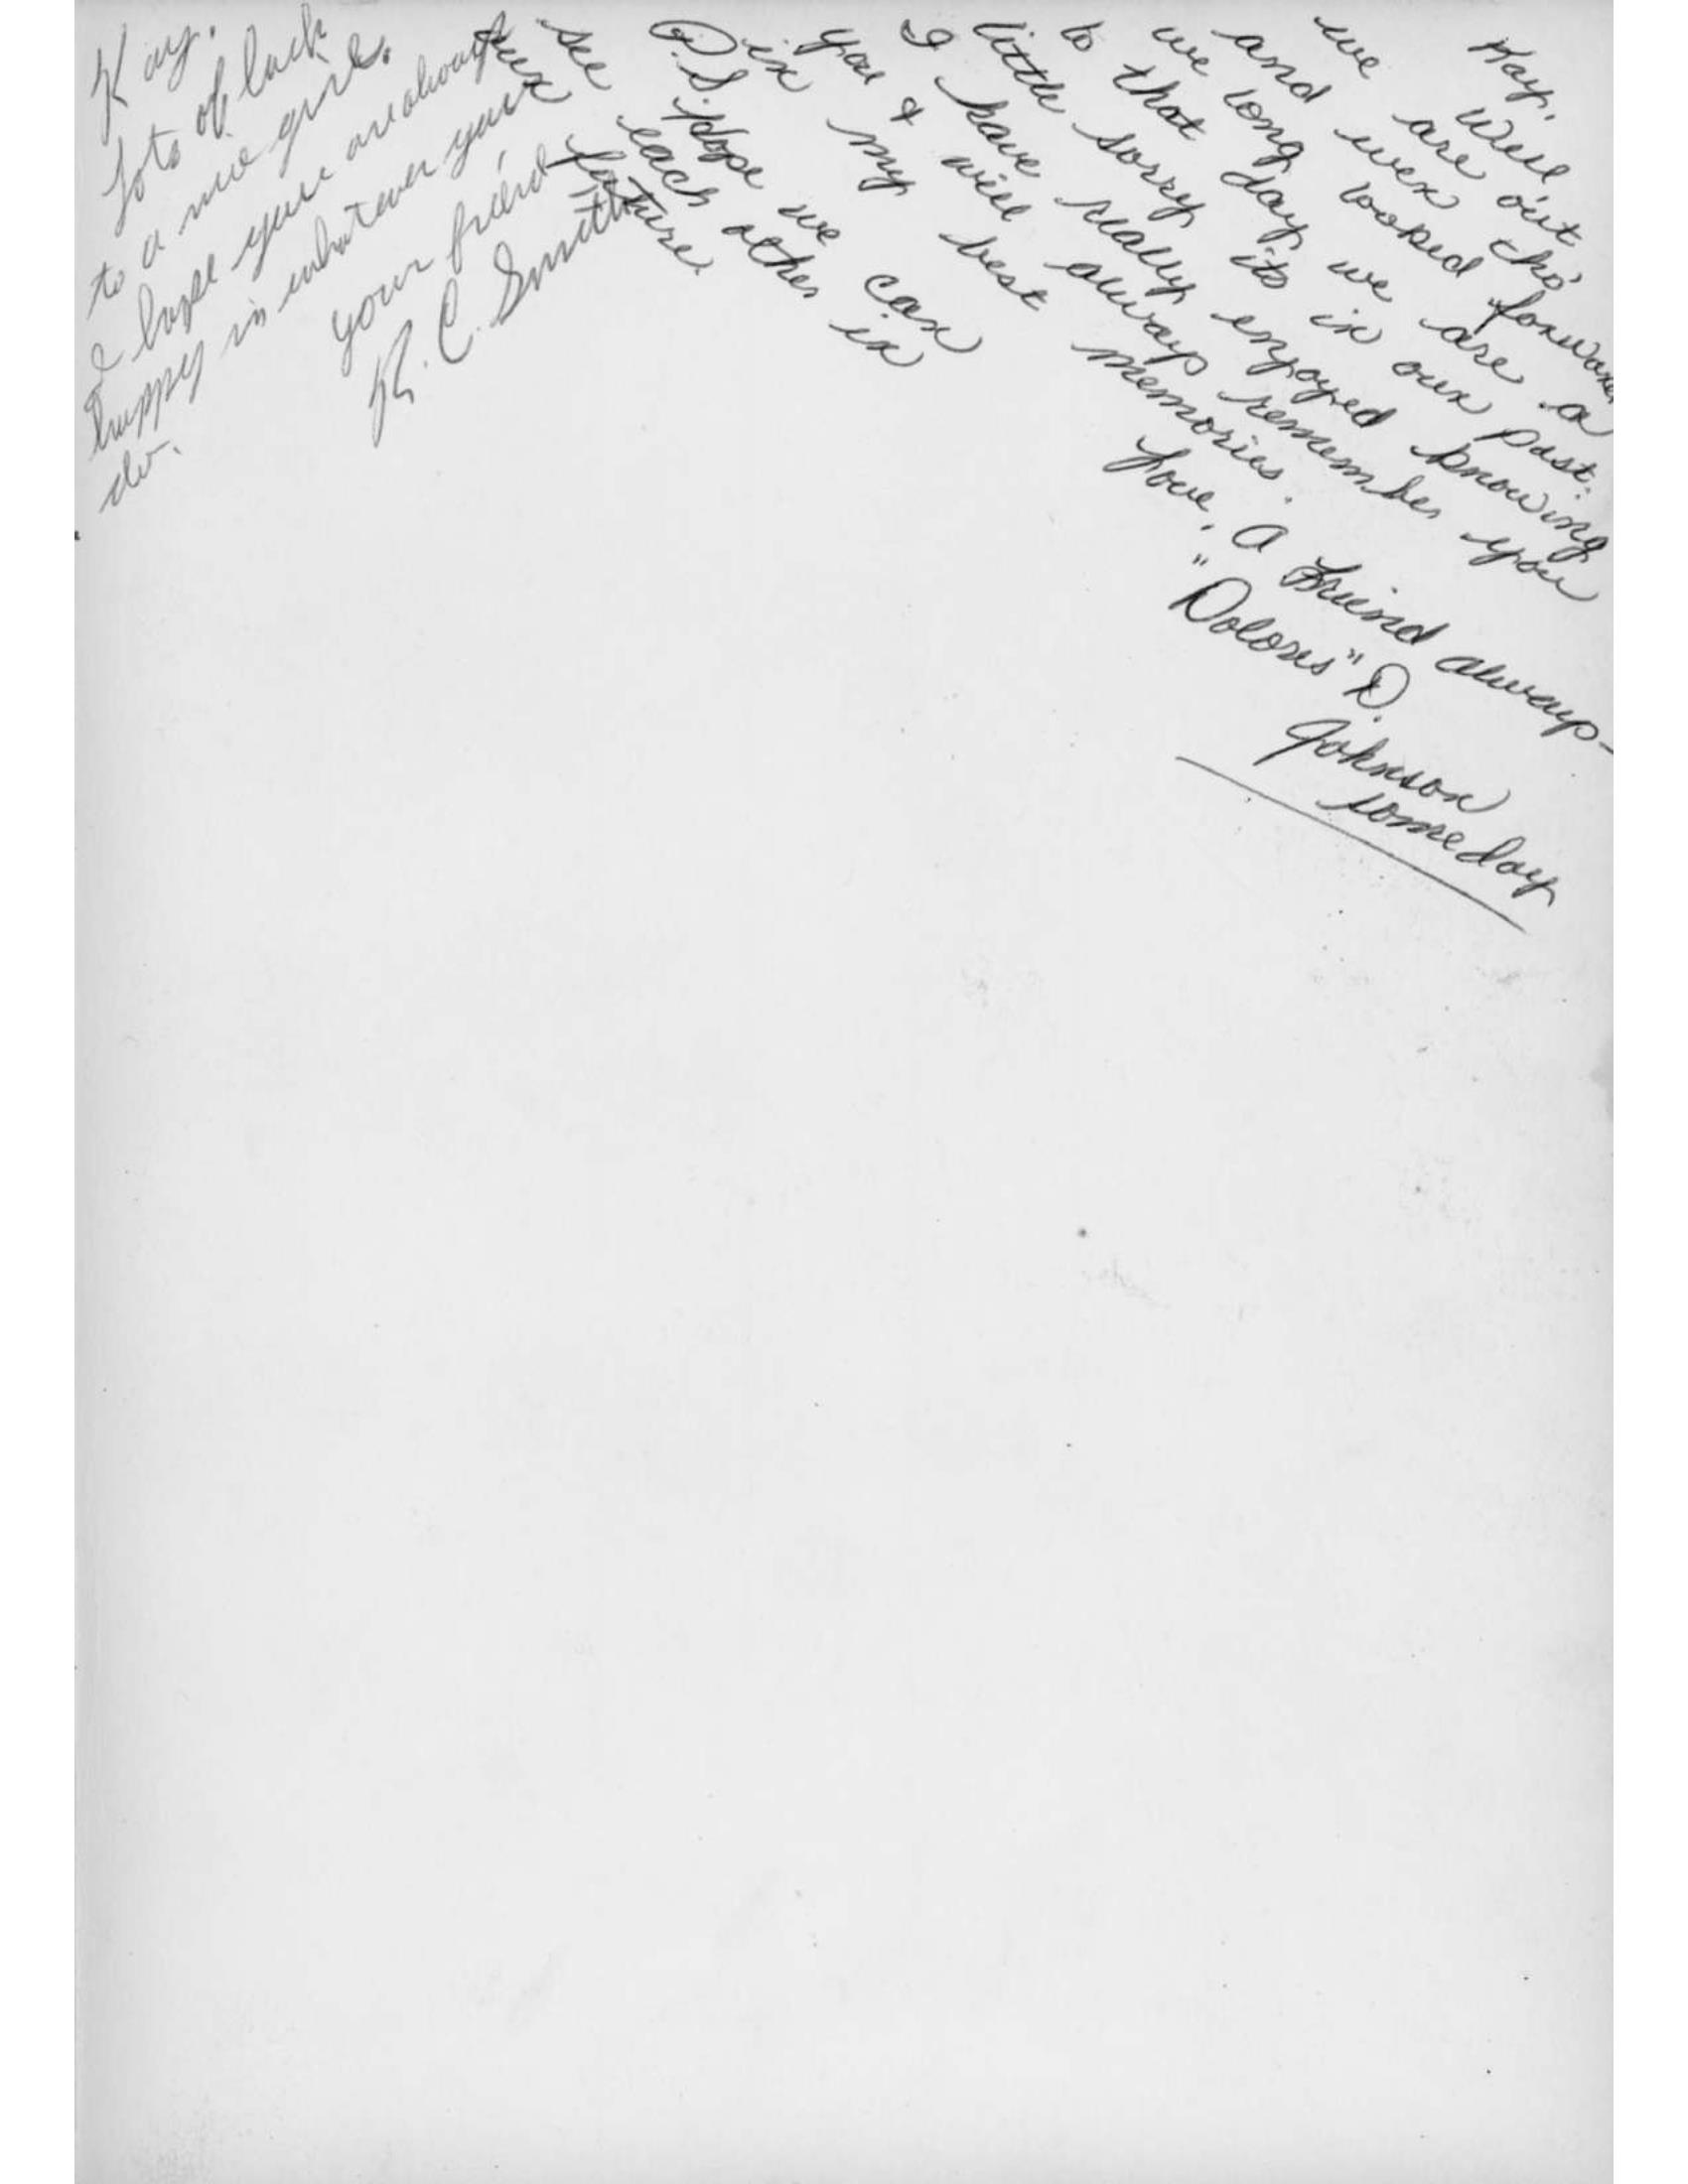 Kay,
Lots of luck
to a nice girl.
I hope you are always
happy in whatever you
do.
your friend,
R. C. Smith
Kay,
Well
we are out
and even tho'
we long looked forward
to that day we are a
little sorry its in our past.
I have really enjoyed knowing
you & will always remember you
in my best memories.
Love, A Friend always-
"Dolores" D.
Johnson
someday
P.S. Hope we can
see each other in
our future.